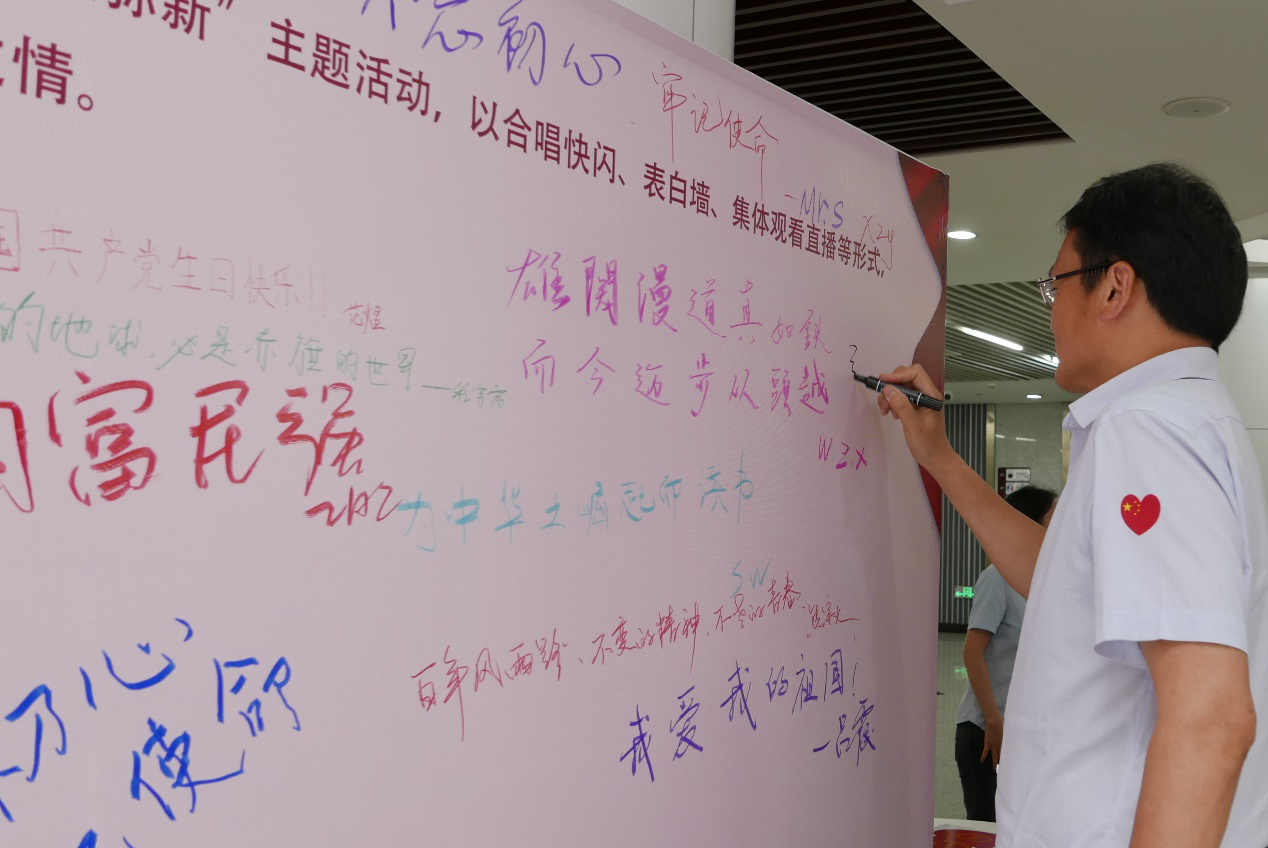 新” 主题活动，以合唱快闪、表白墙、集体观看直播等形式，
情。
不忘初心
牢记使命
-Mrs xzy
国共产党生日快乐!!
的地球,必是赤旗的世界
雄関漫道真如鉄
而今迈步从頭越
WZX
富民强
为中华之崛起而读书
SW
百年风雨路、不变的精神、不老的青春.
初心
使
我爱我的祖国!
—吕震